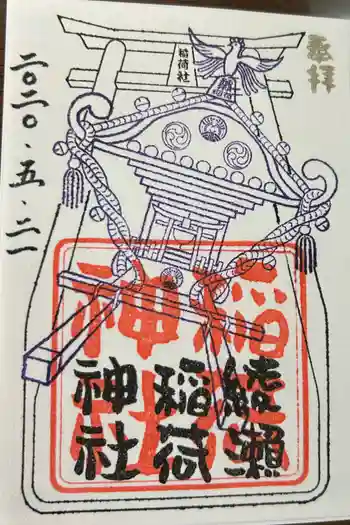 奉拝
稲荷社
綾瀬
稲荷
神社
二〇二〇・五・二一